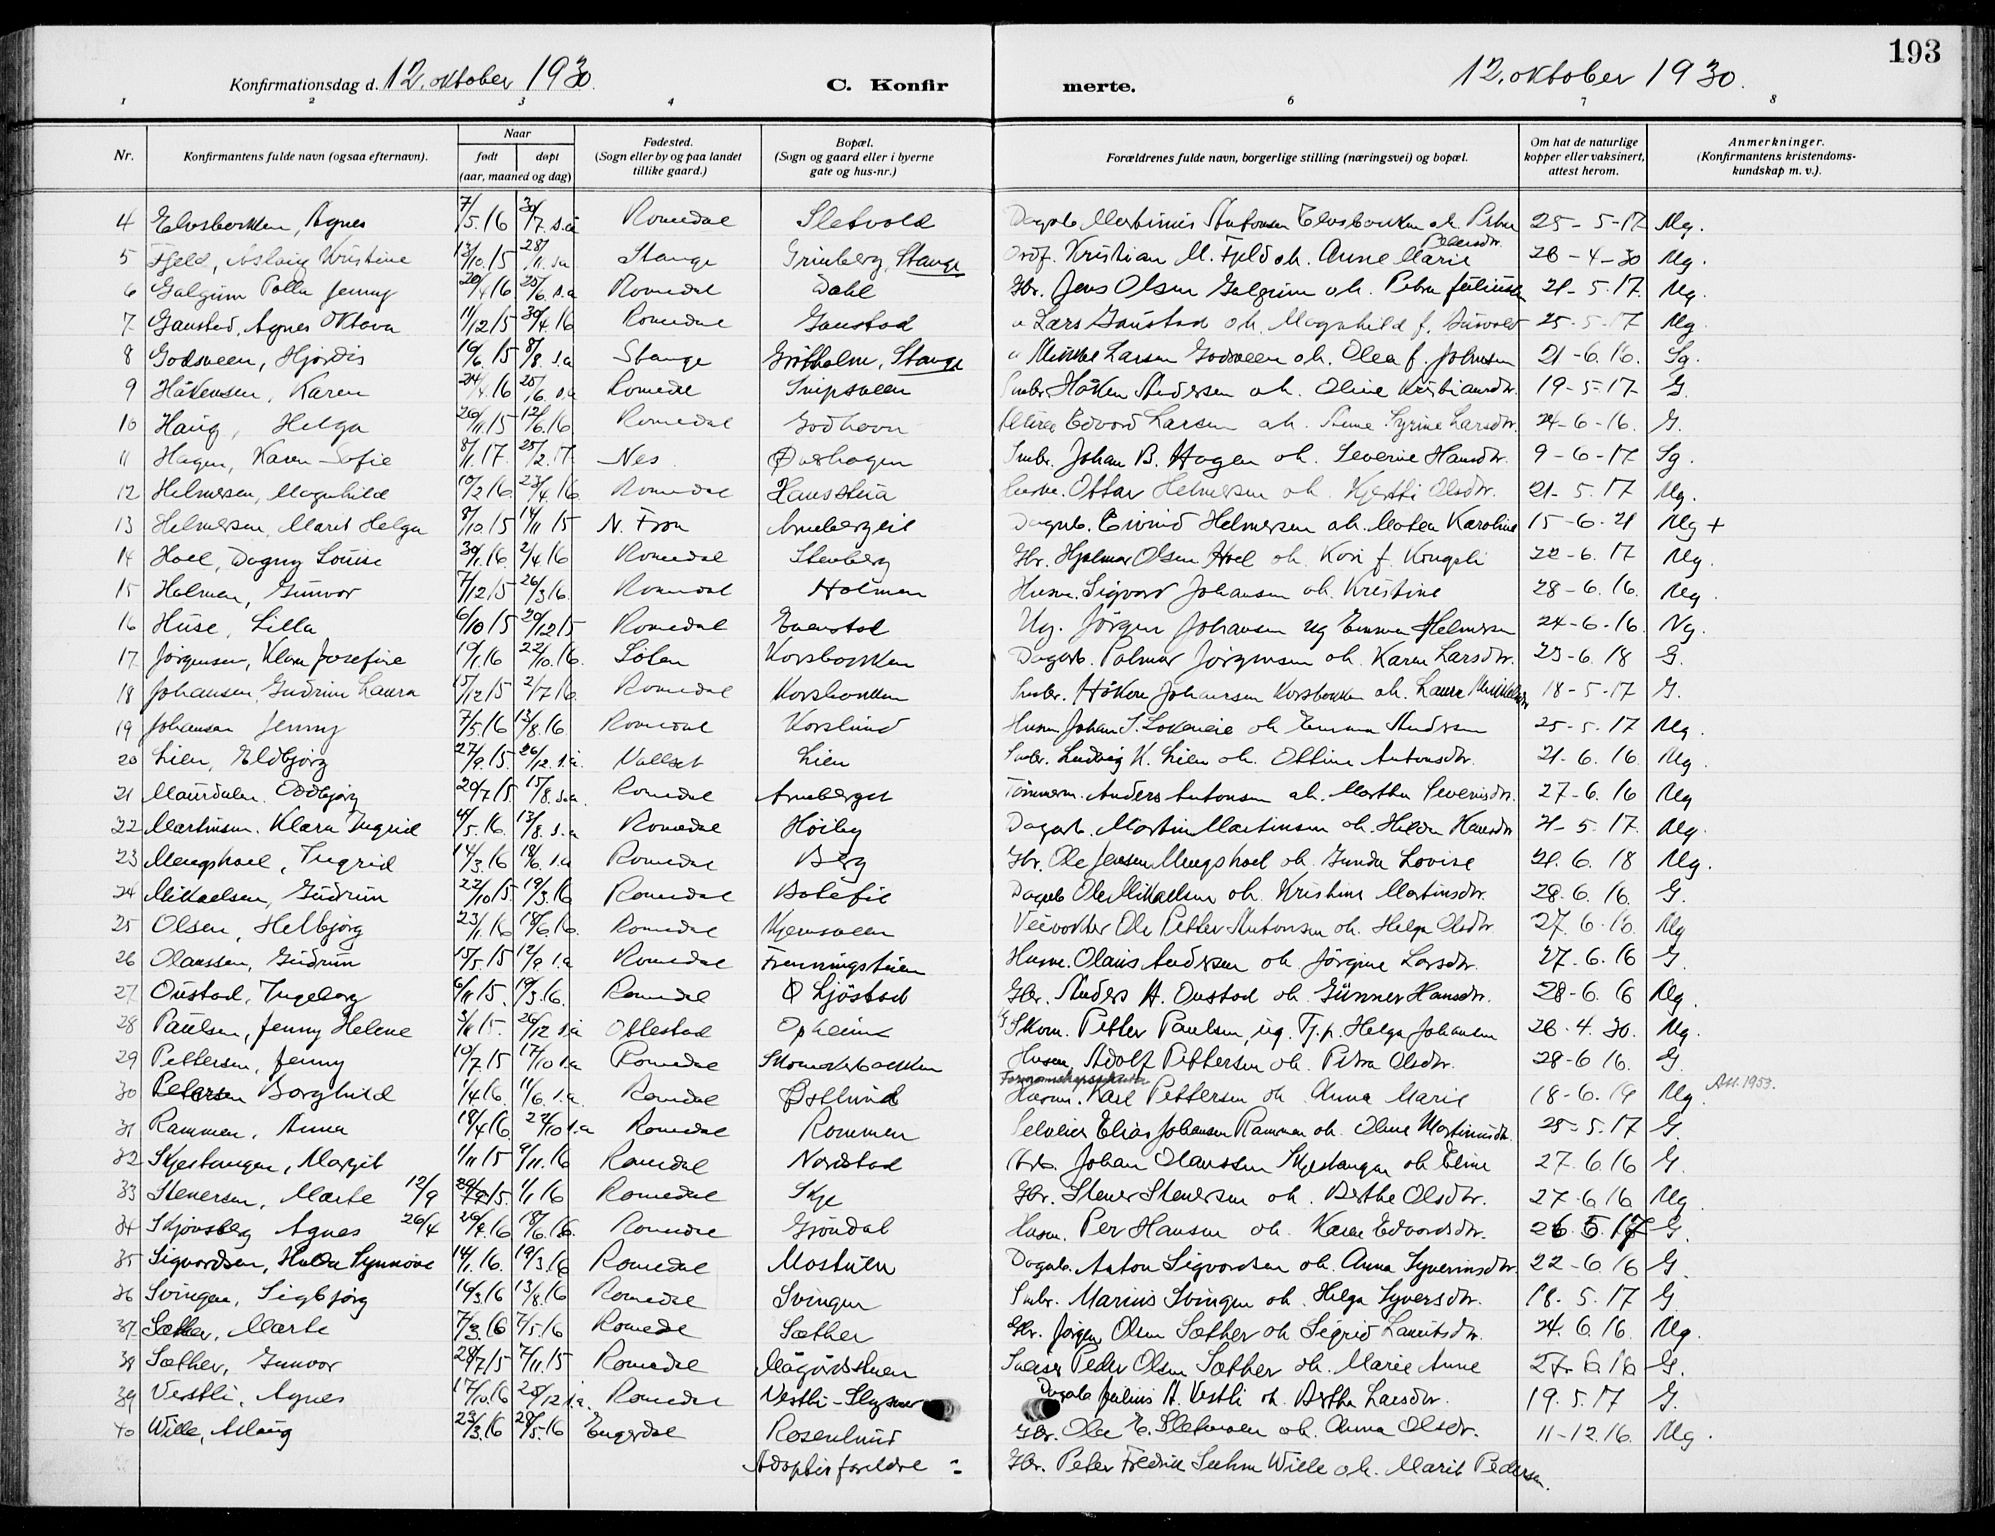 193
Konfirmationsdag d. 12. oktober 1930. C. Konfir merte. 12. oktober 1930.
1 2 3 4 6 7 8
Nr. Konfirmantens fulde navn (ogsaa efternavn). Naar født døpt (aar, maaned og dag) Fødested. (Sogn eller by og paa landet tillike gaard.) Bopæl. (Sogn og gaard eller i byerne gate og hus-nr.) Forældrenes fulde navn, borgerlige stilling (næringsvei) og bopæl. Om hat de naturlige kopper eller vaksinert, attest herom. Anmerkninger. (Konfirmantens kristendoms-kundskap m. v.).
4 Elvsbakken, Agnes 7/5.16 30/7 s.å Romedal Sletvold Dagarb. Martinius Antonsen Elvsbakken oh. Petra 25-5-17 Mg.
5 Fjeld, Aslaug Kristine 13/10.15 28/11 s.a Stange Grinberg, Stange Kristian M. Fjeld oh. Anne Marie Pedersdtr. 26-4-30 Mg.
6 Galgum Polla Jenny 20/4 16 25/6 s.a Romedal Dahl Gbr. Jens Olsen Galgum oh. Petra 21-5.17. Mg.
7 Gaustad, Agnes Oktava 11/12 15 30/4 16 Romedal Gaustad " Lars Gaustad oh. Magnhild f. 25-5-17 Mg.
8 Godsveen, Hjørdis 16/6 15 8/8 s.a Stange Stange " Mikkel Larsen Godsveen oh. Olea f. Johnsen 21-6.16. Sg.
9 Håkensen, Karen 24/4 16 25/6 s.a Romedal Snipsveen Smbr. Håken Andersen oh. Oline Kristiansdtr. 19-5-17 G.
10 Haug, Helga 26/11.15 12/6.16 Romedal Godhavn Edvard Larsen oh. Anne Syrine Larsdtr. 24-6-16. G.
11 Hagen, Karen Sofie 8/1.17. 25/2.17. Nes. Øverhagen Smbr. Johan B. Hagen oh. Severine Hansdtr. 9-6-17 Sg.
12 Helmersen, Magnhild 10/2 16. 23/4.16. Romedal Hansstua Husm. Ottar Helmersen oh. Kjersti Olsdtr. 21-5.17 Mg.
13 Helmersen, Marit Helga 8/10.15 14/11 15 N. Fron Arneberget Dagarb. Eivind Helmersen oh. Matea Karoline 15-6-21 Mg +
14 Hoel, Dagny Louise 30/1.16. 2/4.16 Romedal Stenberg Gbr. Hjalmar Olsen Hoel oh. Kari f. Kongsli 22-6.17 Mg.
15 Holmen, Gunvor 7/12 15 26/3 16. Romedal Holmen Husm. Sigvard Johansen oh. Kristine 28-6.16. Mg.
16 Huse, Lilla 6/10 15 20/12 15 Romedal Evenstad Ug. Jörgen Johansen ug Emma Helmersen 24-6-16. Ng.
17 Jörgensen, Klara Josefine 19/1.16 22/10.16. Löten Korsbakken Dagarb. Palmar Jörgensen oh. Karen Larsdtr. 23-6.18 G.
18 Johansen, Gudrun Laura 15/12 15 2/7 16. Romedal Korsbakken Smbr. Håkon Johansen Korsbakken oh. Laura 18-5-17 G.
19 Johansen Jenny 7/5.16 13/8.16 Romedal Korslund Husm. Johan oh Emma Andersen 25-5.17 Mg.
20 Lien, Eldbjørg 27/9.15. 26/12. s.å. Vallset Lien Smbr. Ludvig K. Lien oh. Ottine Antonsdtr. 21-6.16. Mg.
21 Maurdalen Oddbjørg 20/7 15. 15/8 s.a. Romedal Arneberget Tömmerm. Anders Antonsen oh. Martha Severinsdtr. 27-6.16 Mg
22 Martinsen. Klara Ingrid 4/5.16. 13/8 s.a Romedal Høiby Dagarb. Martin Martinsen oh. Hilda Hansdtr 21-5.17. Mg.
23 Mengshoel, Ingrid 14/3.16 18/6. s.a Romedal Berg Gbr. Ole Jensen Mengshoel oh. Gunda Lovise 21.6.18 Mg.
24 Mikaelsen, Gudrun 22/10 15. 19/3.16 Romedal Dagarb Ole Mikaelsen oh. Kristine Martinsdtr. 28.6.16. G.
25 Olsen, Helbjørg 23/1.16 18/6.16. Romedal Kjernsveen Veivokter Ole Petter Antonsen oh. Helga Olsdtr. 27.6.16. Mg
26 Olaussen, Gudrun 15/5 15 12/9 s.a Romedal Frenningstuen Husm. Olaus Andersen oh Jørgine Larsdtr. 27.6.16 G.
27 Oustad, Ingeborg 6/11 15. 19/3.16. Romedal Ø Ljöstad Gbr. Anders H. Oustad oh. Gunner Hansdtr. 28-6.16 Mg.
28 Paulsen, Jenny Helene 3/11 15. 26/12 s.å Ottestad Opheim Skom. Petter Paulsen, ug. Tj.p. Helga Johansen 26.4.30. Mg.
29 Pettersen, Jenny 10/7 15 17/10 s.a Romedal Skomakerbakken Husm. Adolf Pettersen oh. Petra Olsdtr. 28-6 16. G.
30 Petersen Borghild 1/4 16. 11/6. s.a. Romedal Østlund Husm. Karl Pettersen oh Anna Marie 18-6.19 Mg. Att. 1953.
31 Rammen, Anna 19/4 16 22/10 s.a Romedal Rommen Selveier Elias Johansen Rammen oh. Oline Martinusdtr. 25-5.17 G.
32 Skjestangen, Margit 1/11 15 9/11.16 Romedal Nordstad Johan Olaussen Skjestangen oh Eline 27.6.16 G.
33 Stenersen, Marte 12/9 15. 1/1 16 Romedal Skje Gbr. Stener Stenersen oh. Berthe Olsdtr. 27-6 16 Mg.
34 Skjønsberg Agnes 26/4 26/4 16 18/6.16. Romedal Gröndal Husm. Per Hansen oh. Karen Edvardsdtr. 26 5.17 G.
35 Sigvardsen, Hulda Synnøve 14/1.16. 19/3 16 Romedal Mostuen Dagarb. Anton Sigvardsen oh. Anna Syverinsdtr. 22-6.16 G.
36 Svingen, Sigbjørg 16/3 16 13/8.16 Romedal Svingen Smbr. Marius Svingen oh. Helga Syversdtr. 18-5.17 G.
37 Sæther, Marte 7/3.16 7/5.16 Romedal Sæther Gbr. Jørgen Olsen Sæther oh Sigrid Lauritsdtr. 24.6.16. Mg.
38 Sæther, Gunvor 28/7 15 7/11.15 Romedal Peder Olsen Sæther oh. Marie Anne 27-6 16 G.
39 Vestli, Agnes 17/10.16 28/12 s.a. Romedal Vestli - Dagarb Julius A. Vestli oh. Bertha Larsdtr. 19.5.17 G.
40 Wille, Aslaug 23/3.16 28/5.16 Engerdal Rosenlund Gbr. Ole E. Sletveen oh. Anna Olsdtr. 11-12.16. Mg.
Adoptivforeldre :- Gbr. Peter Fredrik Suhm Wille oh. Marit Pedersen.